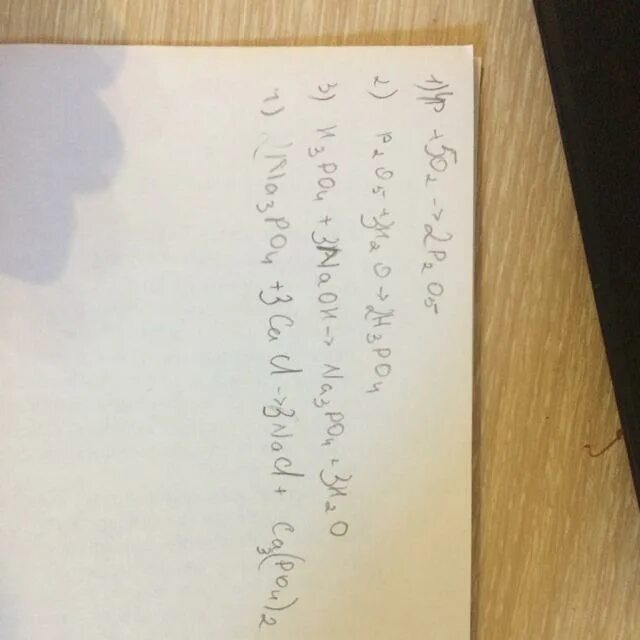 1) 4P + 5O2 → 2P2O5
2) P2O5 + 3H2O → 2H3PO4
3) H3PO4 + 3NaOH → Na3PO4 + 3H2O
4) 2Na3PO4 + 3CaCl → 6NaCl + Ca3(PO4)2